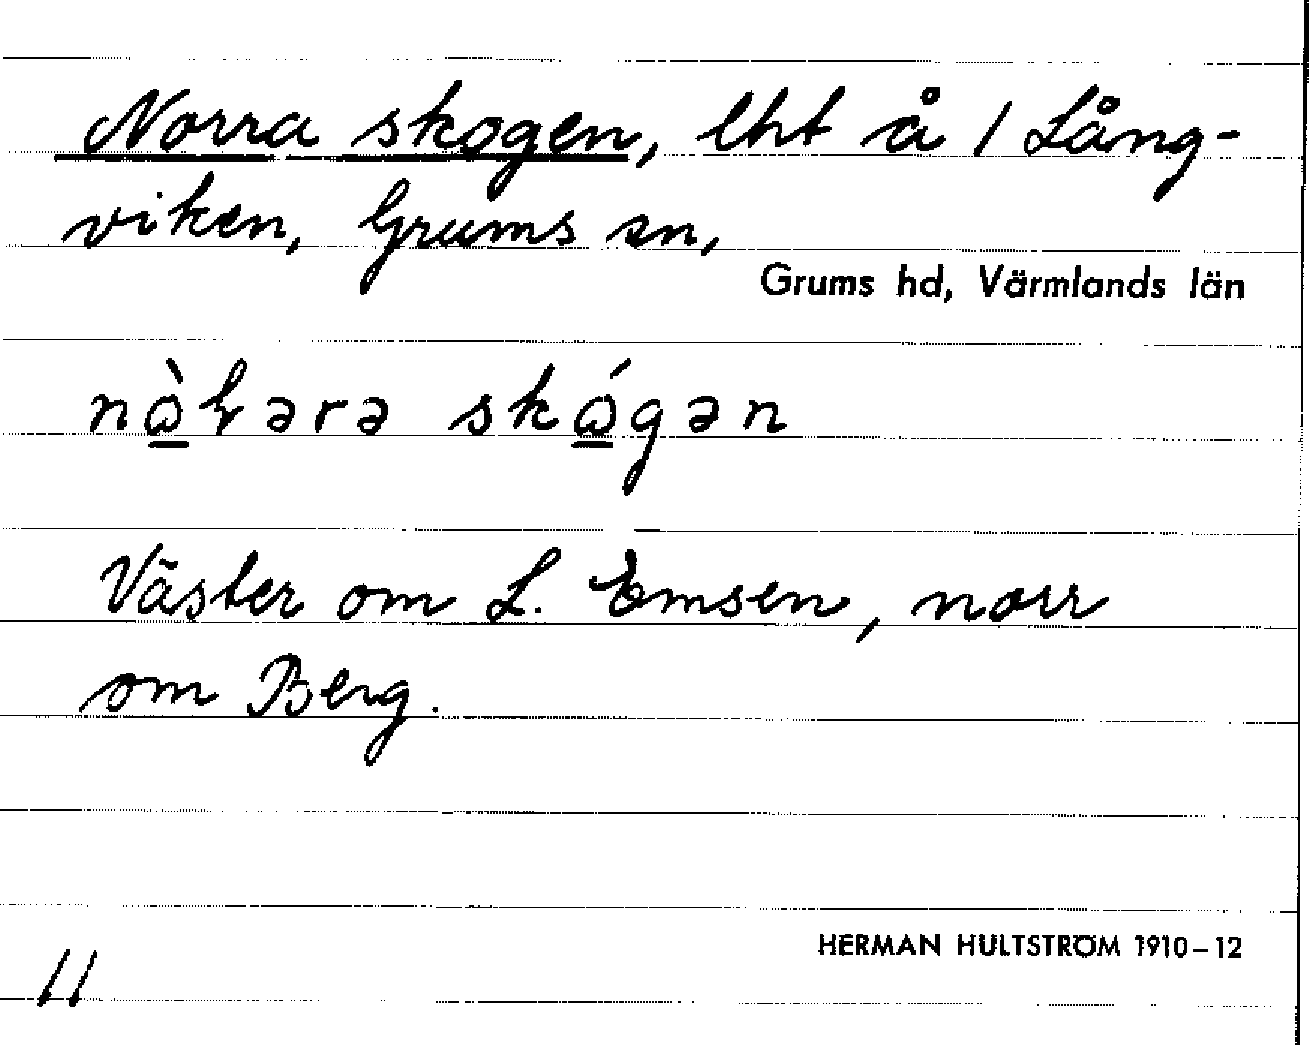 Norra skogen, lht å 1 Lång-
viken, Grums sn,
Grums hd, Värmlands län
skó̲gən
Väster om L. Emsen, norr
om Berg.
HERMAN HULTSTRÖM 1910–12
11